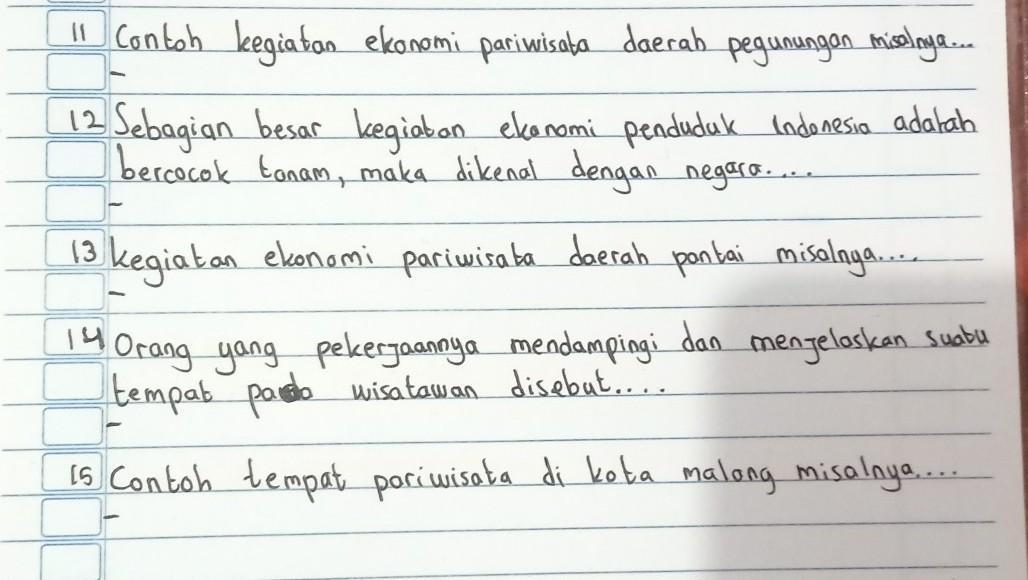 11 Contoh kegiatan ekonomi pariwisata daerah pegunungan misalnya...
-
12 Sebagian besar kegiatan ekonomi penduduk Indonesia adalah
bercocok tanam, maka dikenal dengan negara....
-
13 kegiatan ekonomi pariwisata daerah pantai misalnya....
-
14 Orang yang pekerjaannya mendampingi dan menjelaskan suatu
tempat pada wisatawan disebut....
-
15 Contoh tempat pariwisata di kota malang misalnya....
-